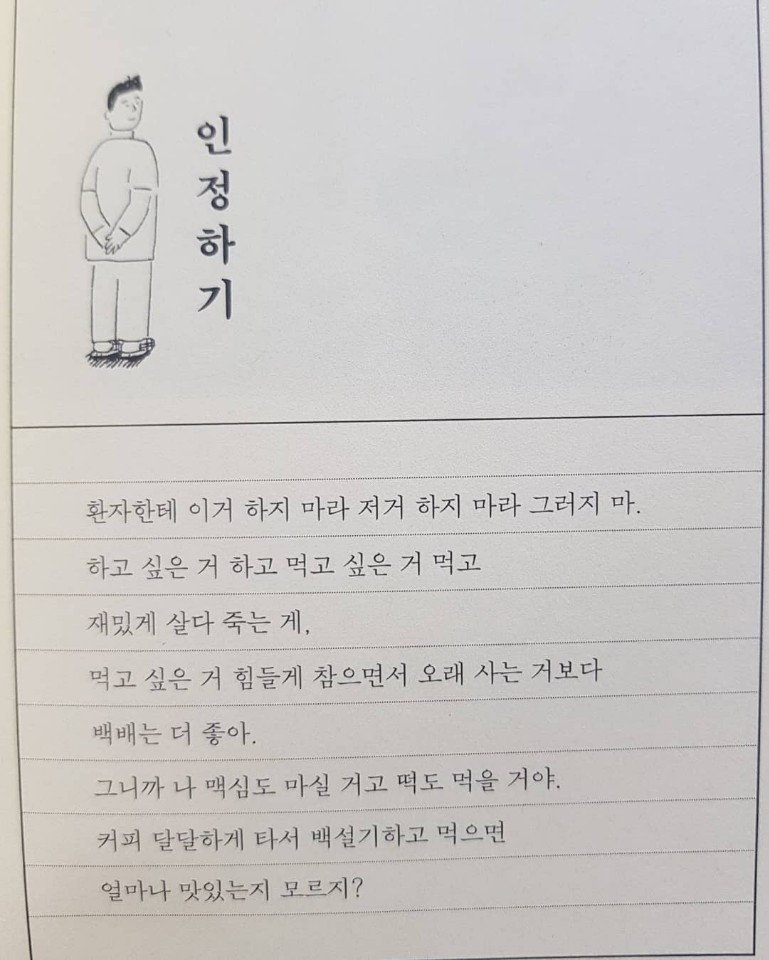 인정하기
환자한테 이거 하지 마라 저거 하지 마라 그러지 마.
하고 싶은 거 하고 먹고 싶은 거 먹고
재밌게 살다 죽는 게,
먹고 싶은 거 힘들게 참으면서 오래 사는 거보다
백배는 더 좋아.
그니까 나 맥심도 마실 거고 떡도 먹을 거야.
커피 달달하게 타서 백설기하고 먹으면
얼마나 맛있는지 모르지?